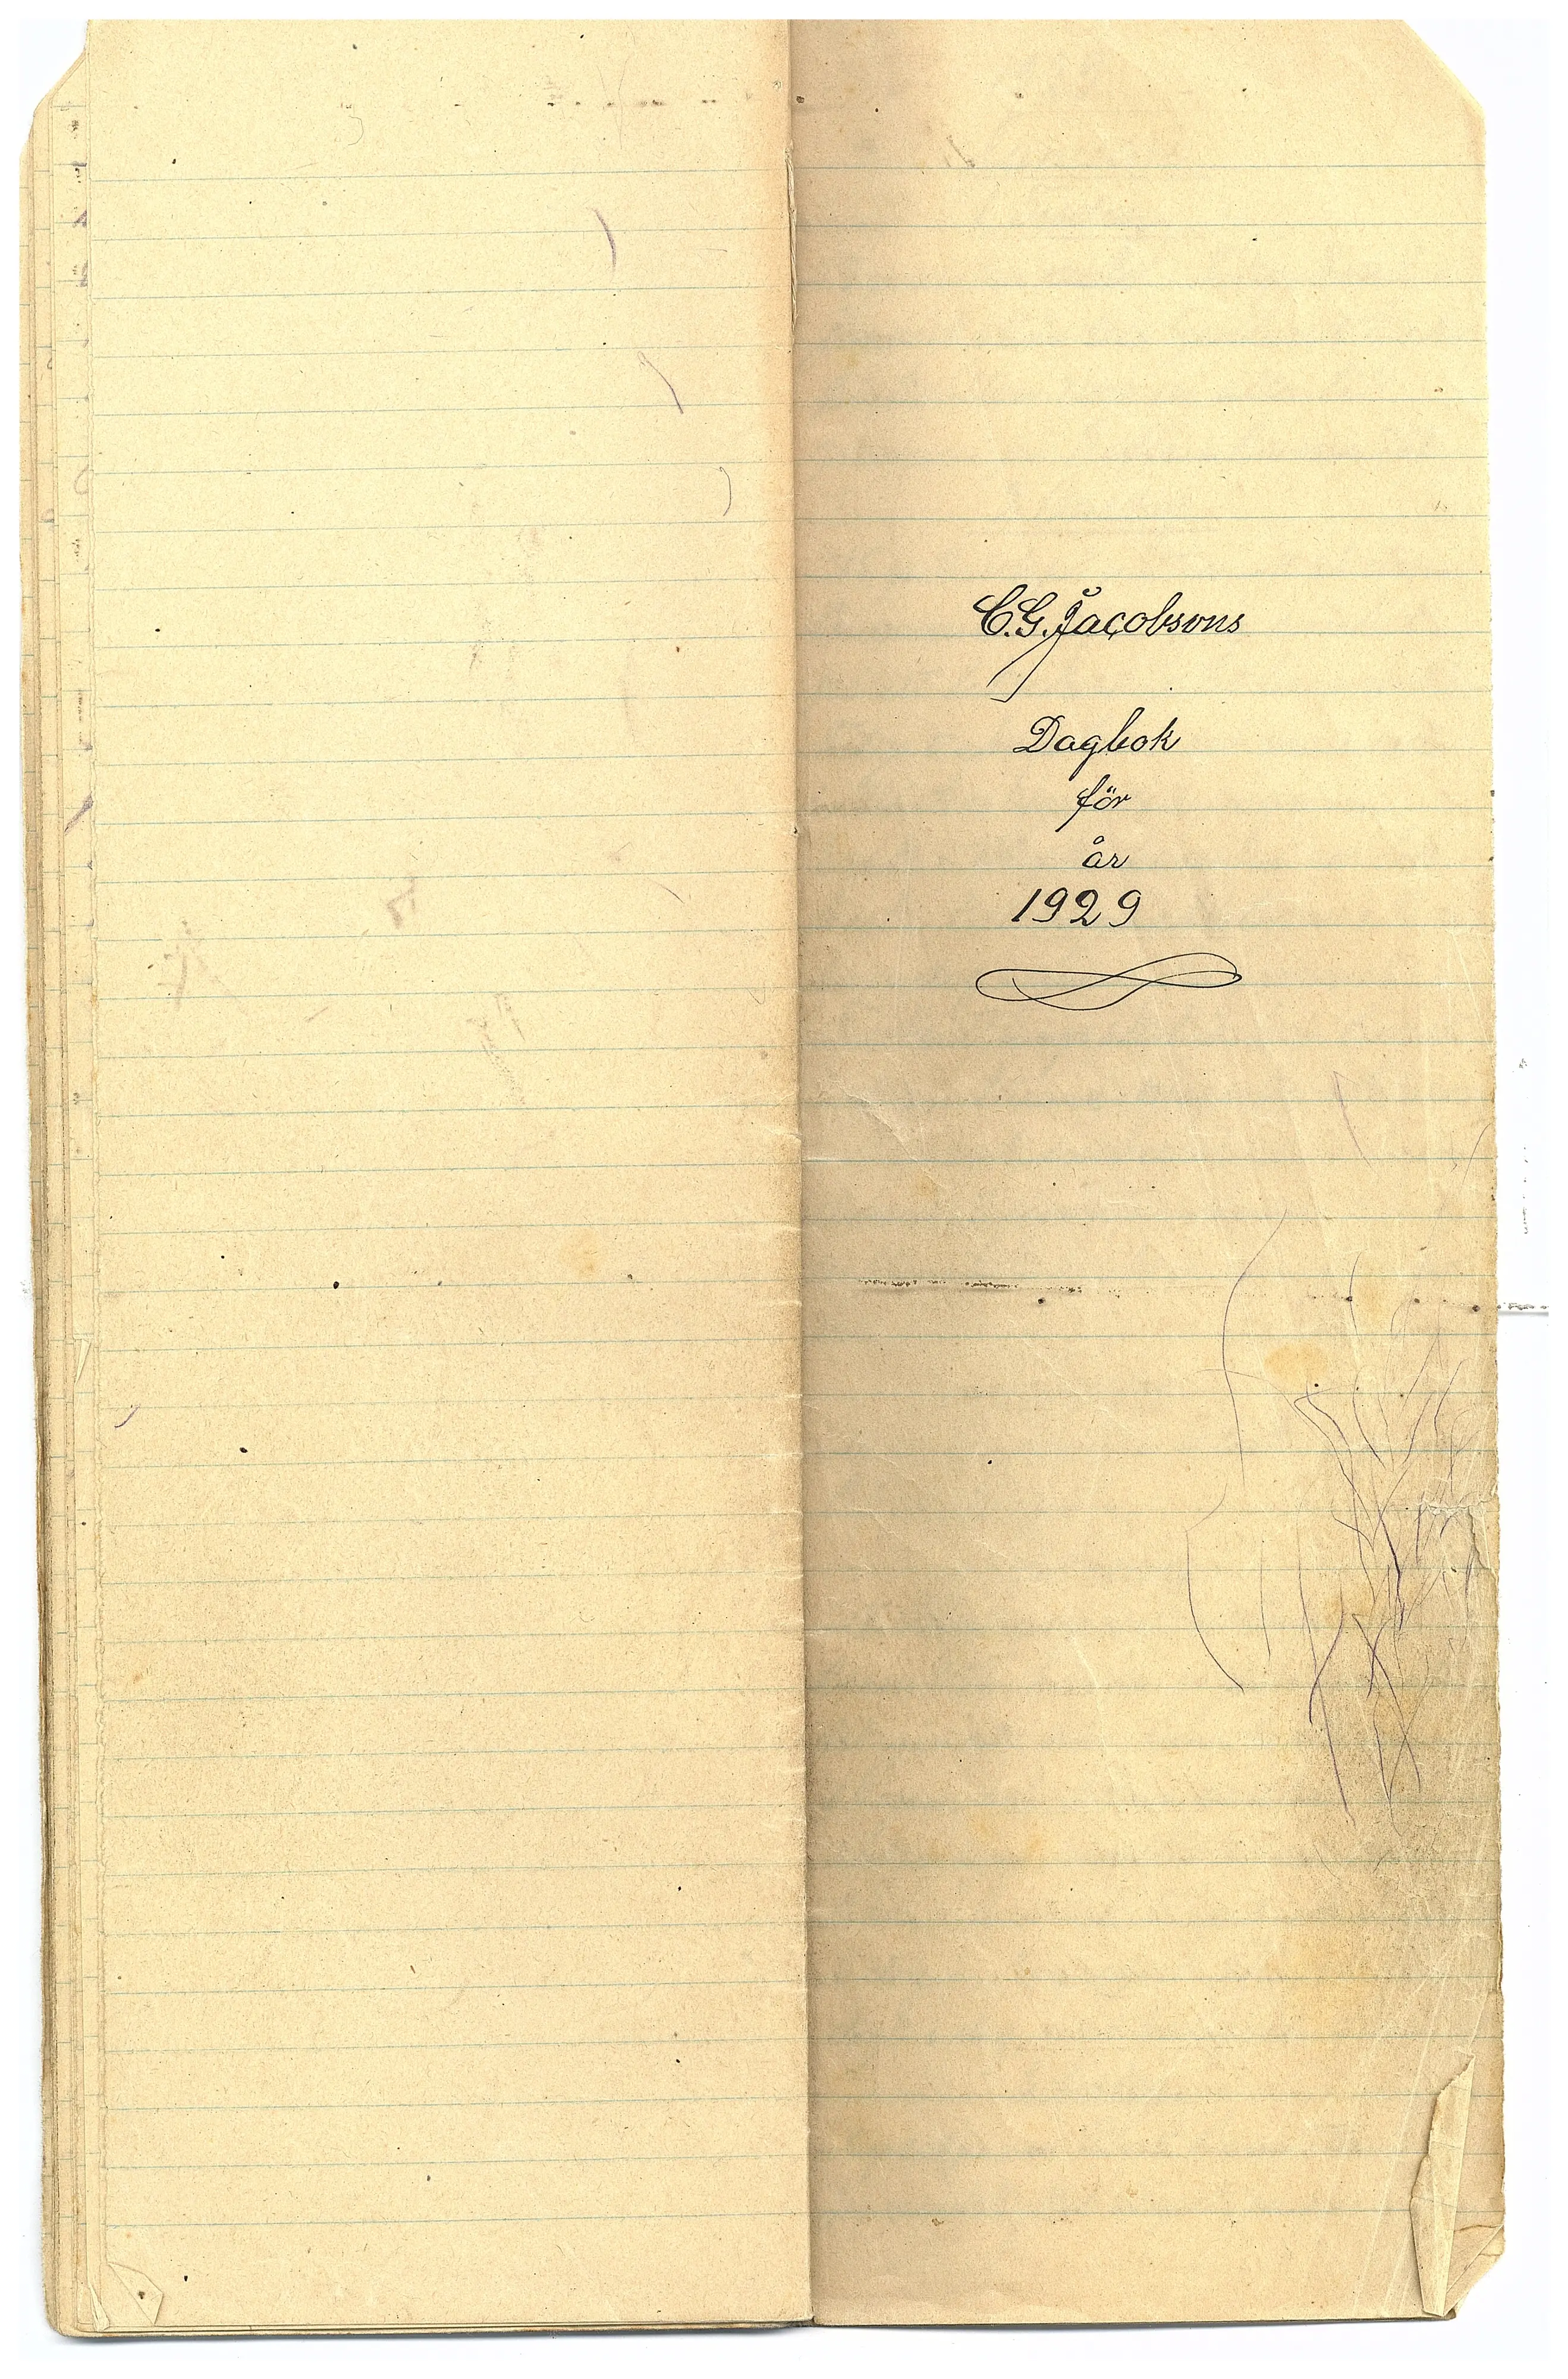 C.G. Jacobsons
Dagbok
för
år
1929